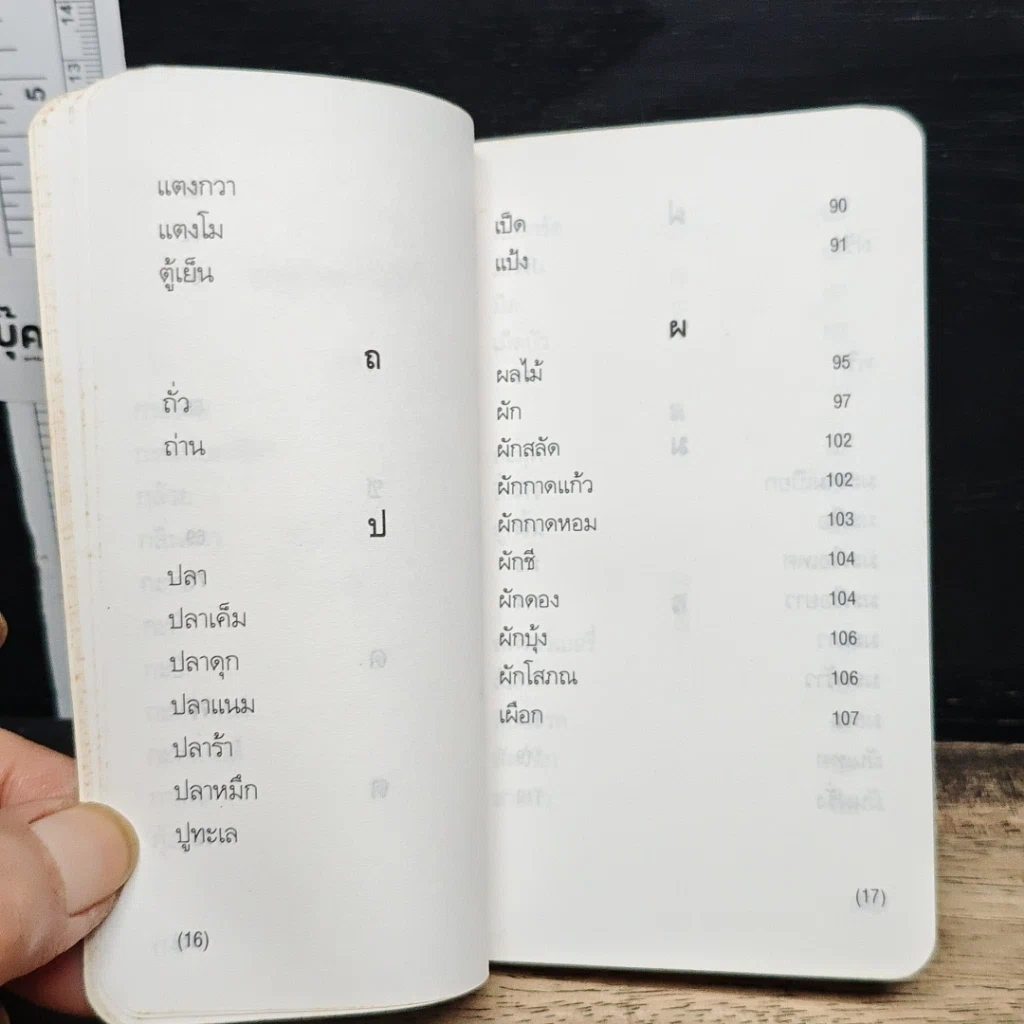 แตงกวา
แตงโม
ตู้เย็น
ถ
ถั่ว
ถ่าน
ป
ปลา
ปลาเค็ม
ปลาดุก
ปลาแนม
ปลาร้า
ปลาหมึก
ปูทะเล
(16)
เป็ด 90
แป้ง 91
ผ
ผลไม้ 95
ผัก 97
ผักสลัด 102
ผักกาดแก้ว 102
ผักกาดหอม 103
ผักชี 104
ผักดอง 104
ผักบุ้ง 106
ผักโสภณ 106
เผือก 107
(17)
14
13
5
บุ๊ค